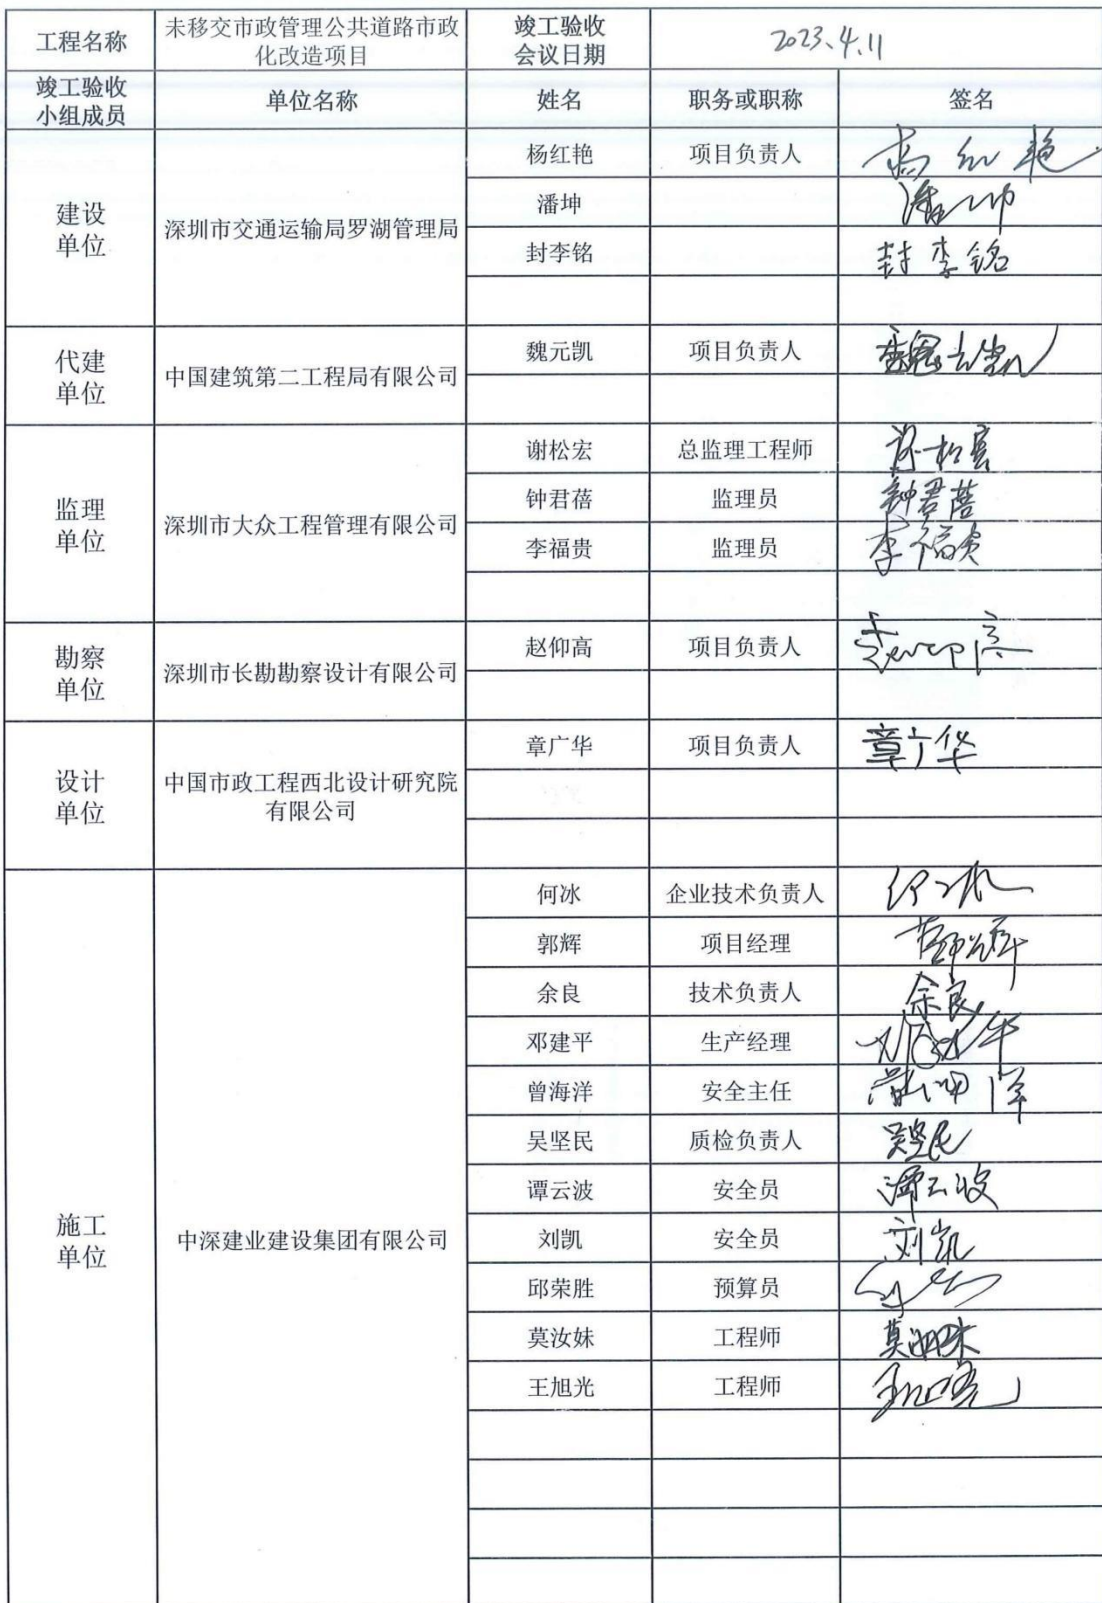 工程名称 未移交市政管理公共道路市政 竣工验收 2023.4.11
化改造项目 会议日期
竣工验收 单位名称 姓名 职务或职称 签名
小组成员
建设
单位
深圳市交通运输局罗湖管理局
杨红艳 项目负责人 杨红艳
潘坤
封李铭 封李铭
代建
单位
中国建筑第二工程局有限公司
魏元凯 项目负责人 魏元凯
监理
单位
深圳市大众工程管理有限公司
谢松宏 总监理工程师
钟君蓓 监理员 钟君蓓
李福贵 监理员 李福贵
勘察
单位
深圳市长勘勘察设计有限公司
赵仰高 项目负责人
设计
单位
中国市政工程西北设计研究院
有限公司
章广华 项目负责人 章广华
施工
单位
中深建业建设集团有限公司
何冰 企业技术负责人
郭辉 项目经理
余良 技术负责人 余良
邓建平 生产经理
曾海洋 安全主任
吴坚民 质检负责人 吴坚民
谭云波 安全员 谭云波
刘凯 安全员 刘凯
邱荣胜 预算员
莫汝妹 工程师 莫汝妹
王旭光 工程师